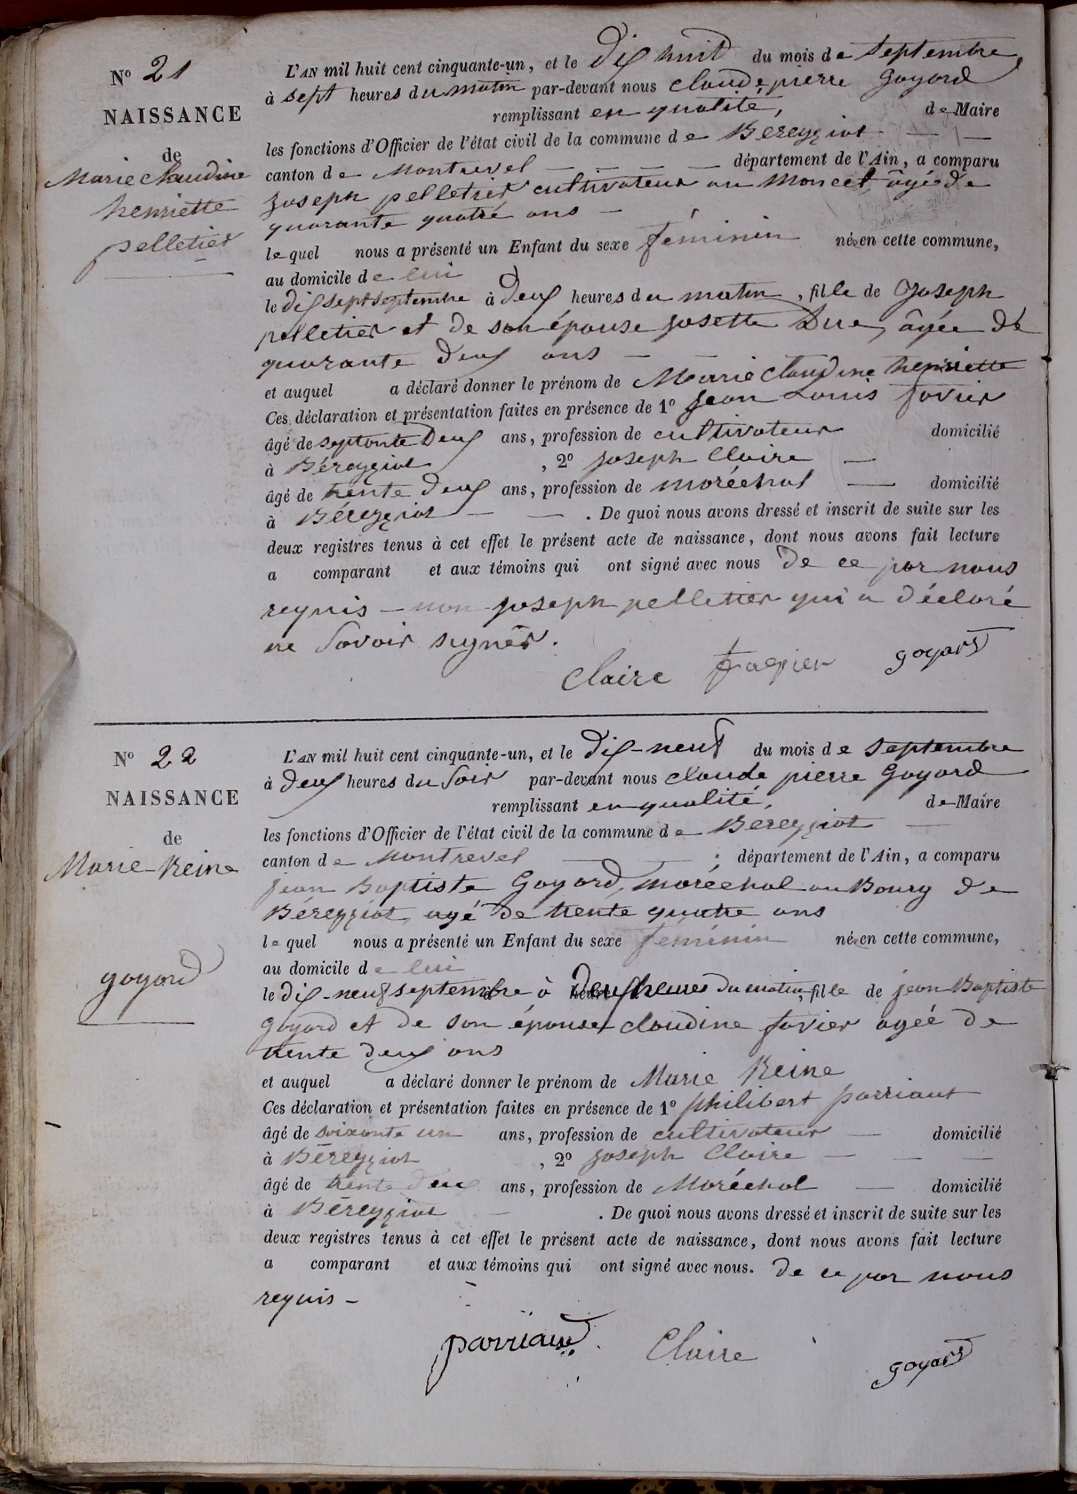 N° 21
NAISSANCE
de
Marie claudine
henriette
pelletier
L'AN mil huit cent cinquante-un, et le dix huit du mois de septembre,
à sept heures du matin par-devant nous claude pierre Goyard
remplissant en qualité, de Maire
les fonctions d'Officier de l'état civil de la commune de Béreyziat
canton de Montrevel département de l'Ain, a comparu
joseph pelletier cultivateur au Moncel âgé de
quarante quatre ans
lequel nous a présenté un Enfant du sexe féminin né en cette commune,
au domicile de lui
le dix sept septembre à deux heures du matin, fille de Joseph
pelletier et de son épouse josette Dure, âgée de
quarante deux ans
et auquel a déclaré donner le prénom de Marie claudine henriette
Ces déclaration et présentation faites en présence de 1° jean Louis favier
âgé de septante deux ans, profession de cultivateur domicilié
à Béreyziat, 2° joseph Claire
âgé de trente deux ans, profession de maréchal domicilié
à Béreyziat. De quoi nous avons dressé et inscrit de suite sur les
deux registres tenus à cet effet le présent acte de naissance, dont nous avons fait lecture
a comparant et aux témoins qui ont signé avec nous de ce par nous
requis - non joseph pelletier qui a déclaré
ne savoir signer.
Claire favier goyard
N° 22
NAISSANCE
de
Marie-Reine
goyard
L'AN mil huit cent cinquante-un, et le dix-neuf du mois de septembre
à deux heures du soir par-devant nous claude pierre Goyard
remplissant en qualité, de Maire
les fonctions d'Officier de l'état civil de la commune de Béreyziat
canton de Montrevel ; département de l'Ain, a comparu
jean Baptiste Goyard, maréchal au Bourg de
Béreyziat, agé de trente quatre ans
lequel nous a présenté un Enfant du sexe féminin né en cette commune,
au domicile de lui
le dix-neuf septembre à deux heures du matin, fille de jean Baptiste
goyard et de son épouse claudine favier agée de
trente deux ans
et auquel a déclaré donner le prénom de Marie Reine
Ces déclaration et présentation faites en présence de 1° philibert parriaut
âgé de soixante un ans, profession de cultivateur domicilié
à Béreyziat, 2° joseph Claire
âgé de trente deux ans, profession de Maréchal domicilié
à Béreyziat. De quoi nous avons dressé et inscrit de suite sur les
deux registres tenus à cet effet le présent acte de naissance, dont nous avons fait lecture
a comparant et aux témoins qui ont signé avec nous. de ce par nous
requis -
parriaud Claire goyard